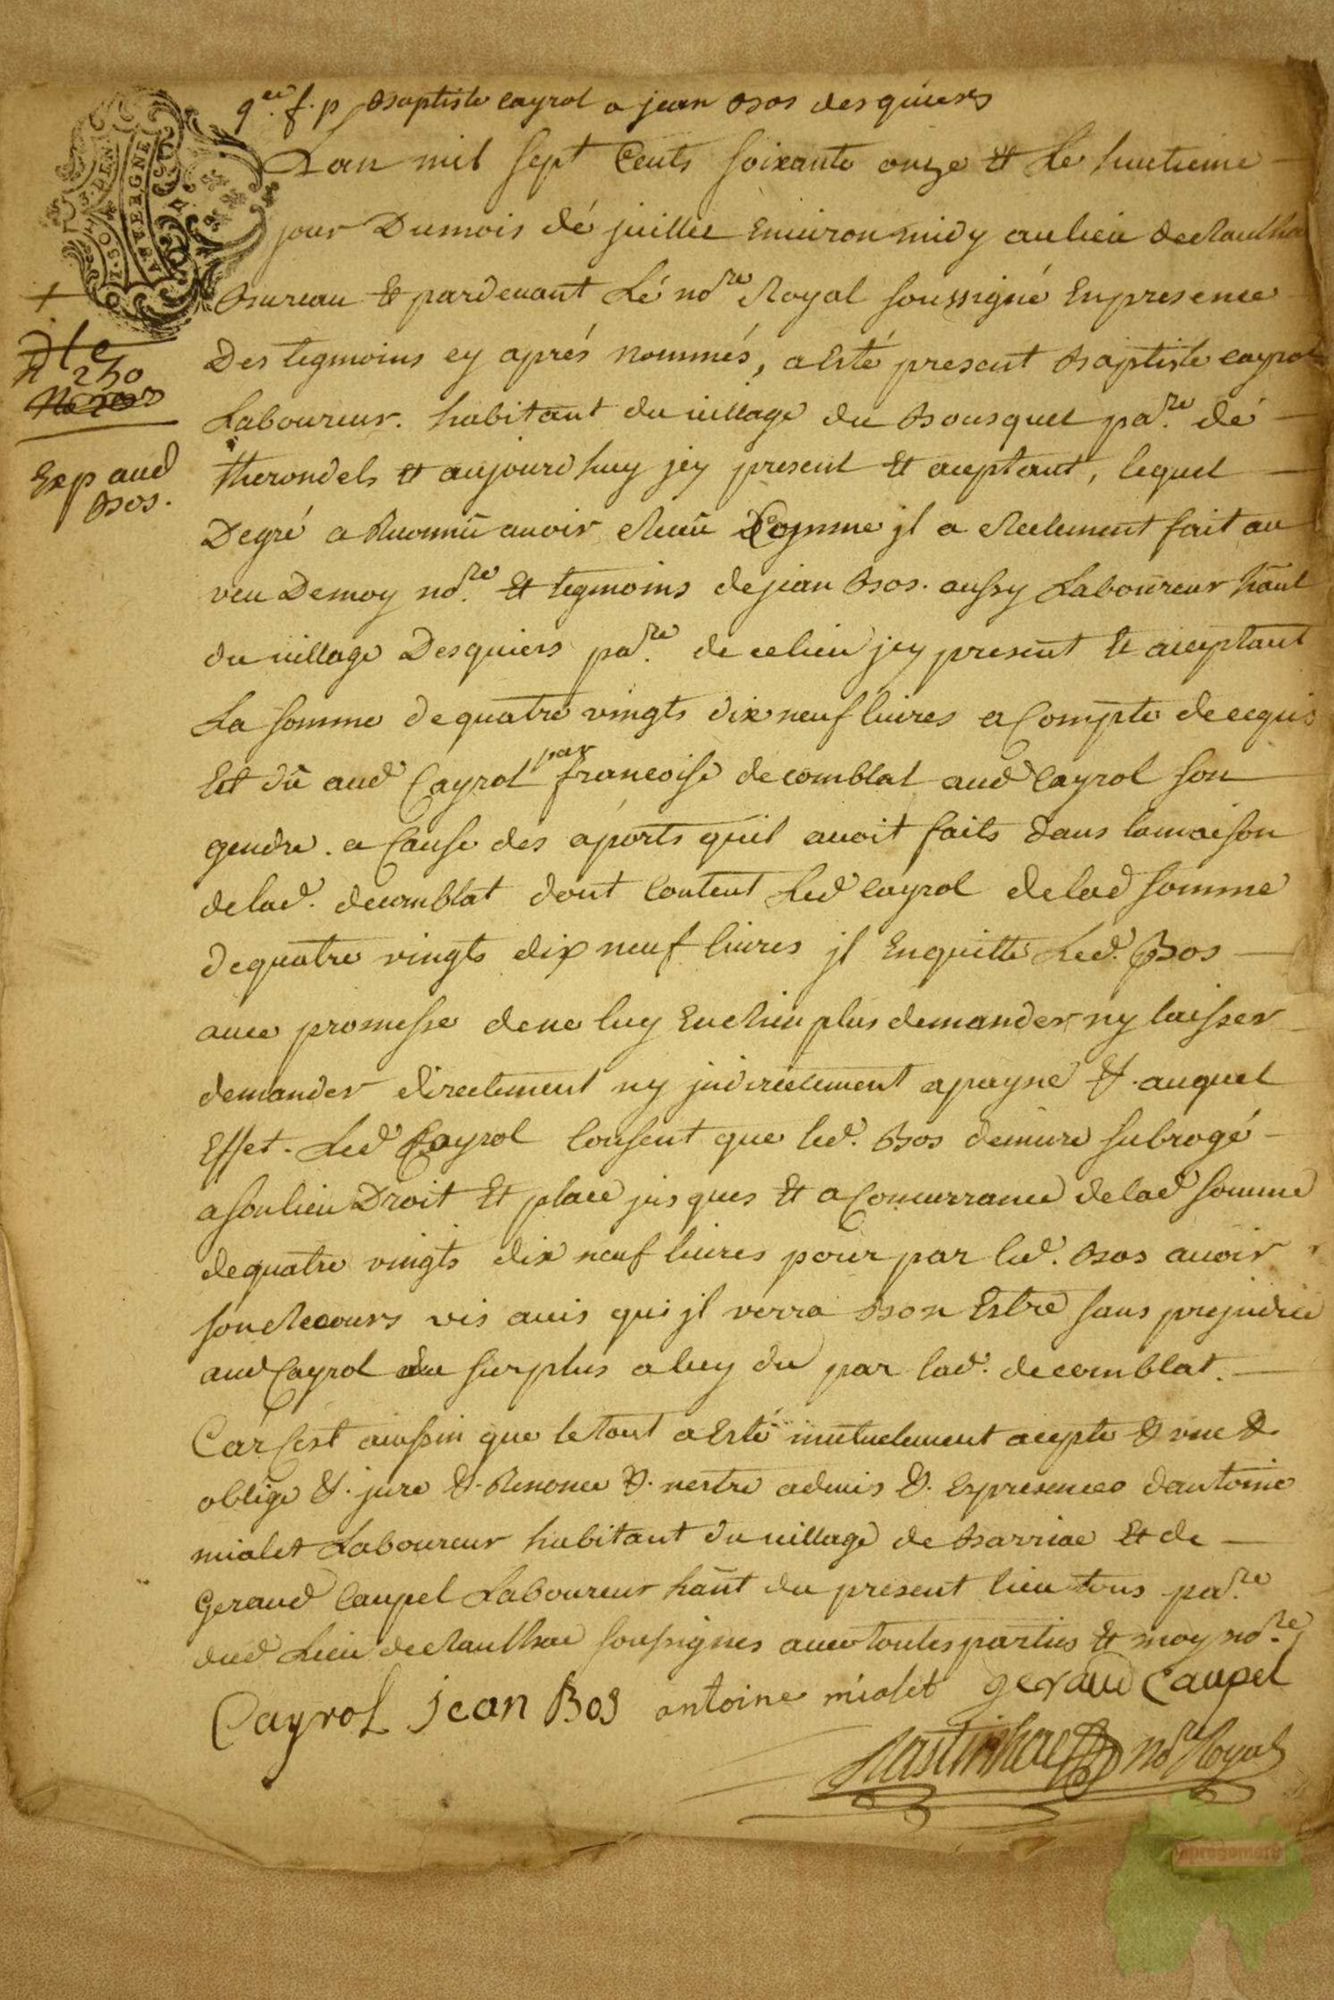 q.ce f. p. Baptiste cayrol a jean Bos desquiers
Lan mil sept Cents soixante onze et Le huitieme
jour Dumois dé juillet Environ midy aulieu deRaulhac
Bureau et pardevant Lé no.re Royal soussigné Enpresence
Des tegmoins cy aprés nommés, a Esté present Baptiste cayrol
Laboureur. habitant du village du Bousquet pa.re dé
therondels et aujourdhuy jcy present et aceptant, lequel
Degré a Reconnû avoir Receu Comme jl a Reelement fait au
veu Demoy no.re et tegmoins dejean Bos. aussy Laboureur hant
du village Desquiers pa.re decelieu jcy present et aceptant
La somme dequatre vingts dix neuf livres a Compte decequi
Est dû aud Cayrol par francoise decomblat aud Cayrol son
gendre. a Cause des aports quil avoit faits dans lamaison
delad. decomblat dont Content Led cayrol delad somme
dequatre vingts dix neuf livres jl Enquitte Led. Bos
avec promesse dene luy EnRien plus demander ny laisser
demander directement ny jndirectement apayne &. auquel
Effet. Led Cayrol Consent que led. Bos demure subrogé
asonlieu Droit Et place jusques et a Concurrance delad somme
dequatre vingts dix neuf livres pour par led. Bos avoir
sonRecours vis avis qui jl verra Bon Estre sans prejudice
aud Cayrol du surplus a luy du par lad. decomblat.
Car Cest ainsin que letout a Esté mutuelement acepte &
oblige &. jure &. Renonce &. nestre admis &. Expresences dantoine
mialet Laboureur habitant du village de Barriac Et de
Geraud Caupel Laboureur hant du present lieu tous pa.re
dud Lieu deRaulhac soussignes avec toutes parties Et moy no.re
Cayrol jean Bos antoine mialet geraud Caupel
no.re Royal
OI. SO. DEN
AVERGNE
n 250
Exp aud
Bos.